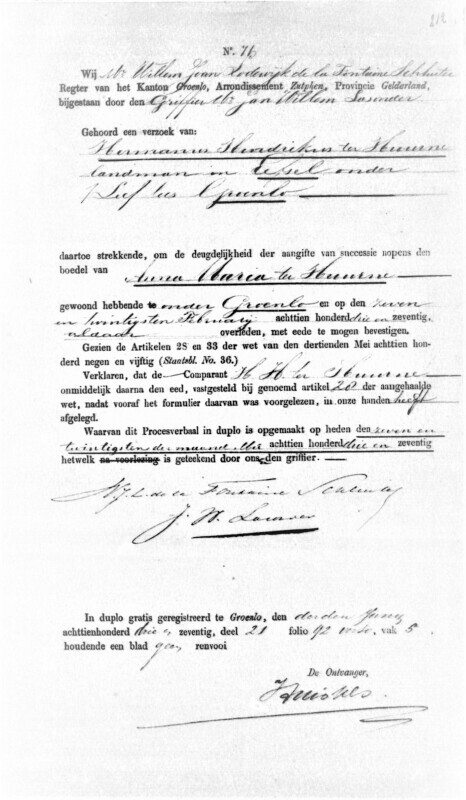 N.º 76
Wij Mr Willem Joan Lodewijk de la Fontaine Schluiter
Regter van het Kanton Groenlo, Arrondissement Zutphen, Provincie Gelderland,
bijgestaan door den Griffier Mr Jan Willem
Gehoord een verzoek van:
Hermanus Hendrikus ter Huurne
landman in onder
Groenlo
daartoe strekkende, om de deugdelijkheid der aangifte van successie nopens den
boedel van Anna Maria ter Huurne
gewoond hebbende te onder Groenlo en op den zeven
en twintigsten Februarij achttien honderd drie en zeventig,
aldaar overleden, met eede te mogen bevestigen.
Gezien de Artikelen 28 en 33 der wet van den dertienden Mei achttien hon-
derd negen en vijftig (Staatsbl. No. 36.)
Verklaren, dat de Comparant H. H. ter Huurne
onmiddelijk daarna den eed, vastgesteld bij genoemd artikel 28 der aangehaalde
wet, nadat vooraf het formulier daarvan was voorgelezen, in onze handen heeft
afgelegd.
Waarvan dit Procesverbaal in duplo is opgemaakt op heden den zeven en
twintigsten der maand Mei achttien honderd drie en zeventig
hetwelk na voorlezing is geteekend door ons en den griffier.
W. J. L. de la Fontaine Schluiter
J. W.
In duplo gratis geregistreerd te Groenlo, den derden Junij
achttienhonderd drie en zeventig, deel 21 folio 92 verso, vak 5
houdende een blad geen renvooi
De Ontvanger,